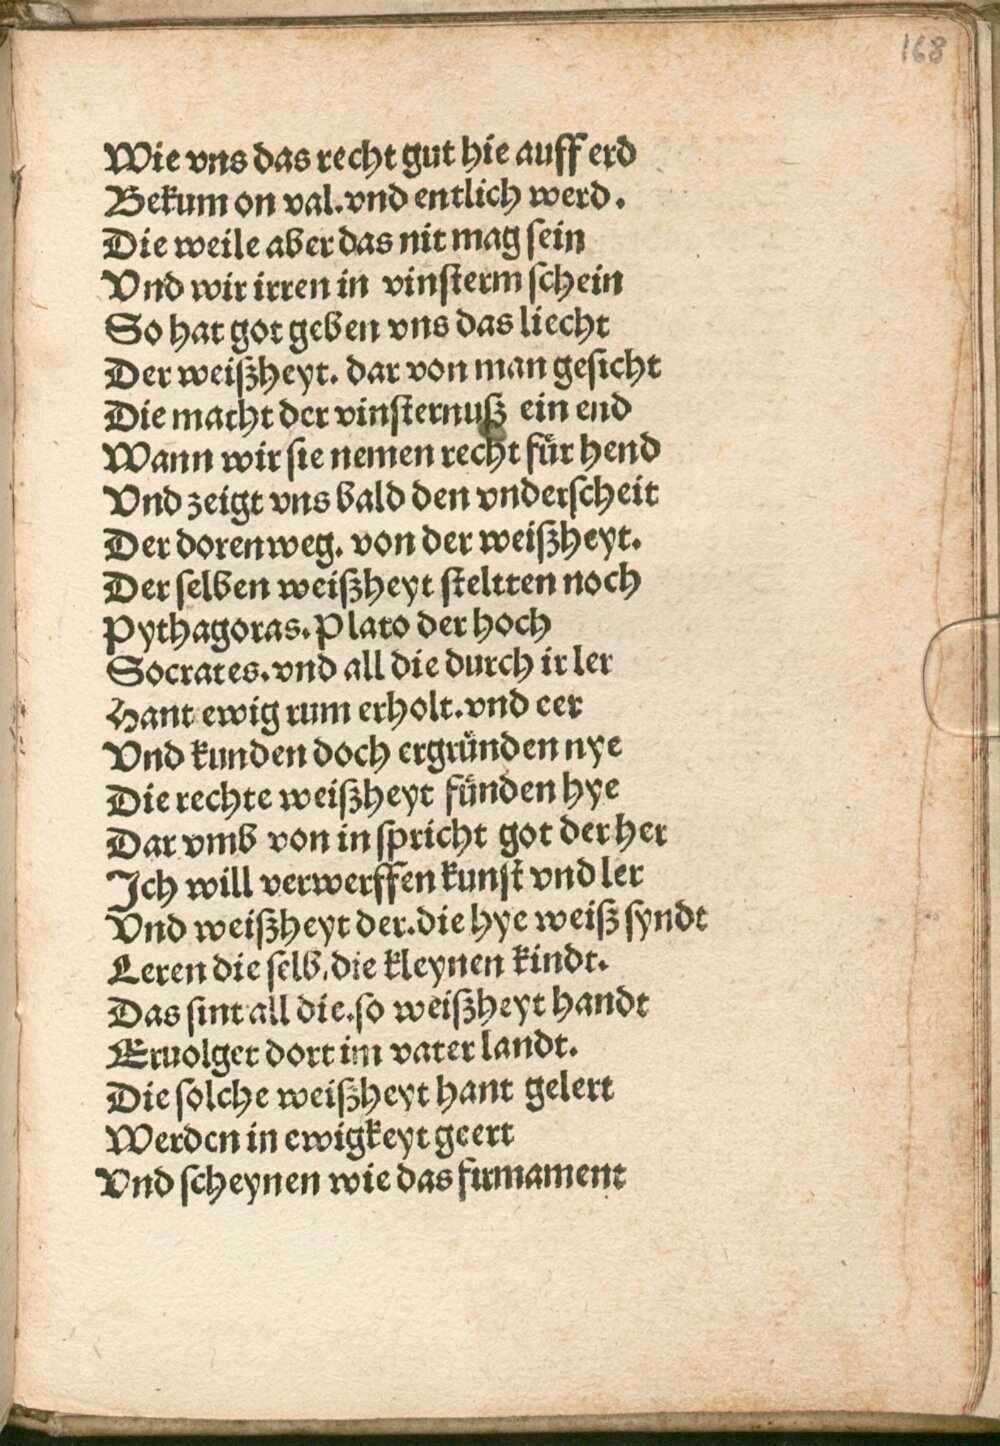 168
Wie vns das recht gut hie auff erd
Bekum on val. vnd entlich werd.
Die weile aber das nit mag sein
Vnd wir irren in vinsterm schein
So hat got geben vns das liecht
Der weißheyt. dar von man gesicht
Die macht der vinsternuß ein end
Wann wir sie nemen recht für hend
Vnd zeigt vns bald den vnderscheit
Der doren weg. von der weißheyt.
Der selben weißheyt steltten noch
Pythagoras. Plato der hoch
Socrates. vnd all die durch ir ler
Hant ewig rum erholt. vnd eer
Vnd kunden doch ergründen nye
Die rechte weißheyt fünden hye
Dar vmb von in spricht got der her
Ich will verwerffen kunst vnd ler
Vnd weißheyt der. die hye weiß syndt
Leren die selb, die kleynen kindt.
Das sint all die. so weißheyt handt
Eruolget dort im vater landt.
Die solche weißheyt hant gelert
Werden in ewigkeyt geert
Vnd scheynen wie das firmament